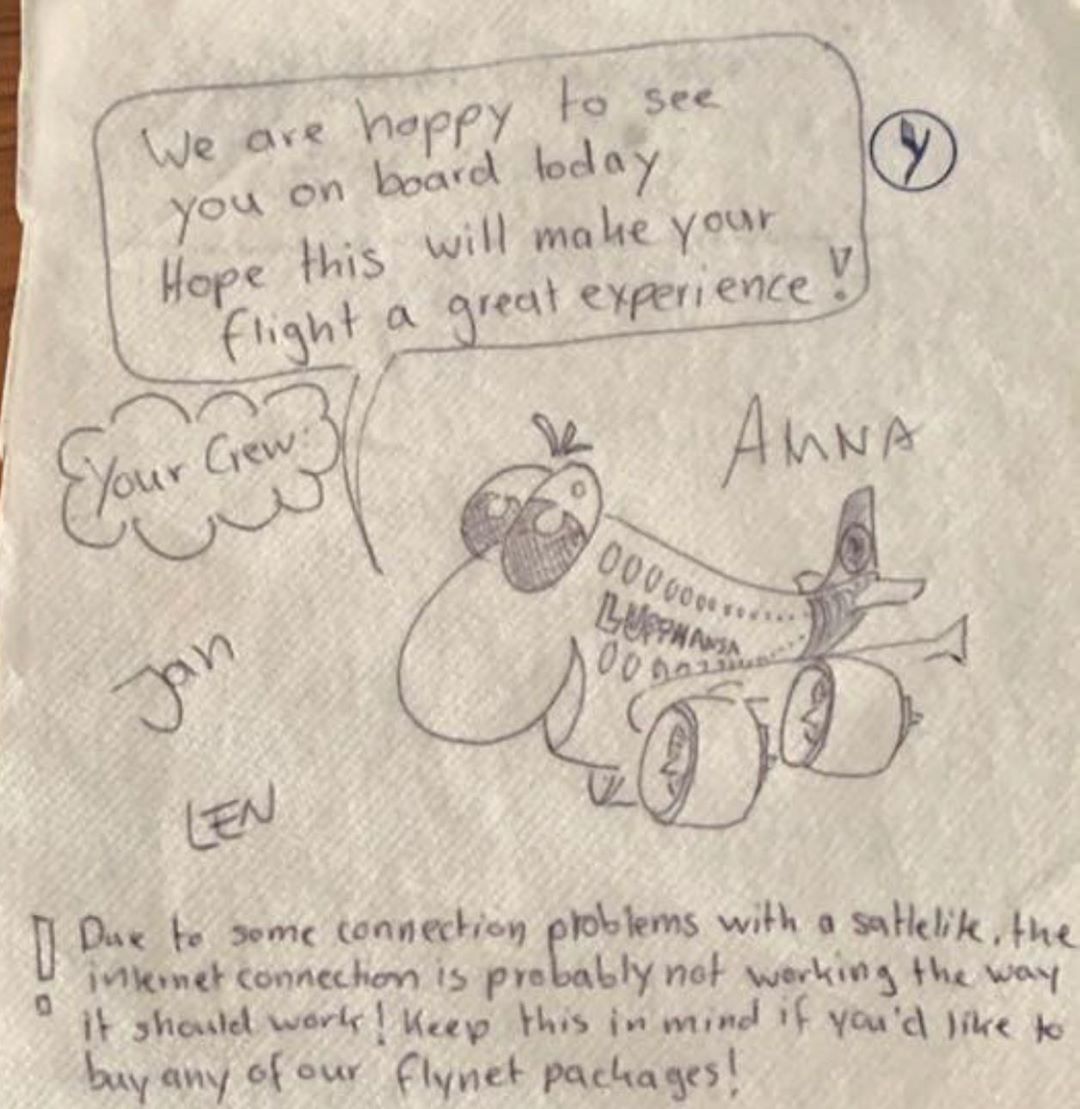 We are happy to see
you on board today
Hope this will make your
flight a great experience!
Your Crew:
ANNA
LUFTHANSA
Jan
LEN
Due to some connection problems with a sattelite, the
internet connection is probably not working the way
it should work! Keep this in mind if you'd like to
buy any of our flynet packages!